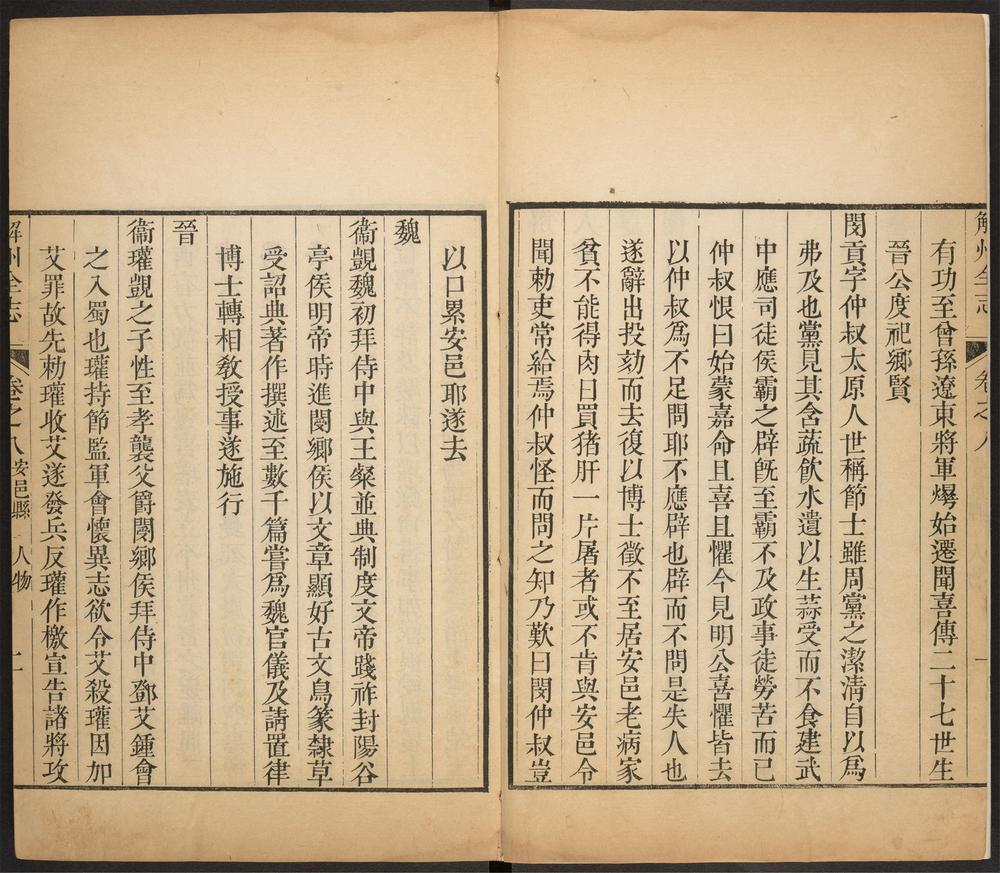 解州全志 卷之八 一
有功至曾孫遼東將軍爗始遷聞喜傳二十七世生
晉公度祀鄉賢
閔貢字仲叔太原人世稱節士雖周黨之潔清自以爲
弗及也黨見其含蔬飮水遺以生蒜受而不食建武
中應司徒侯霸之辟旣至霸不及政事徒勞苦而已
仲叔恨曰始蒙嘉命且喜且懼今見明公喜懼皆去
以仲叔爲不足問耶不應辟也辟而不問是失人也
遂辭出投劾而去復以博士徵不至居安邑老病家
貧不能得肉日買猪肝一片屠者或不肯與安邑令
聞勅吏常給焉仲叔怪而問之知乃歎曰閔仲叔豈
以口累安邑耶遂去
魏
衞覬魏初拜侍中與王粲並典制度文帝踐祚封陽谷
亭侯明帝時進閿鄉侯以文章顯好古文鳥篆隸草
受詔典著作撰述至數千篇嘗爲魏官儀及請置律
博士轉相敎授事遂施行
晉
衞瓘覬之子性至孝襲父爵閿鄉侯拜侍中鄧艾鍾會
之入蜀也瓘持節監軍會懷異志欲令艾殺瓘因加
艾罪故先勅瓘收艾遂發兵反瓘作檄宣告諸將攻
解州全志 卷之八 安邑縣 人物 二